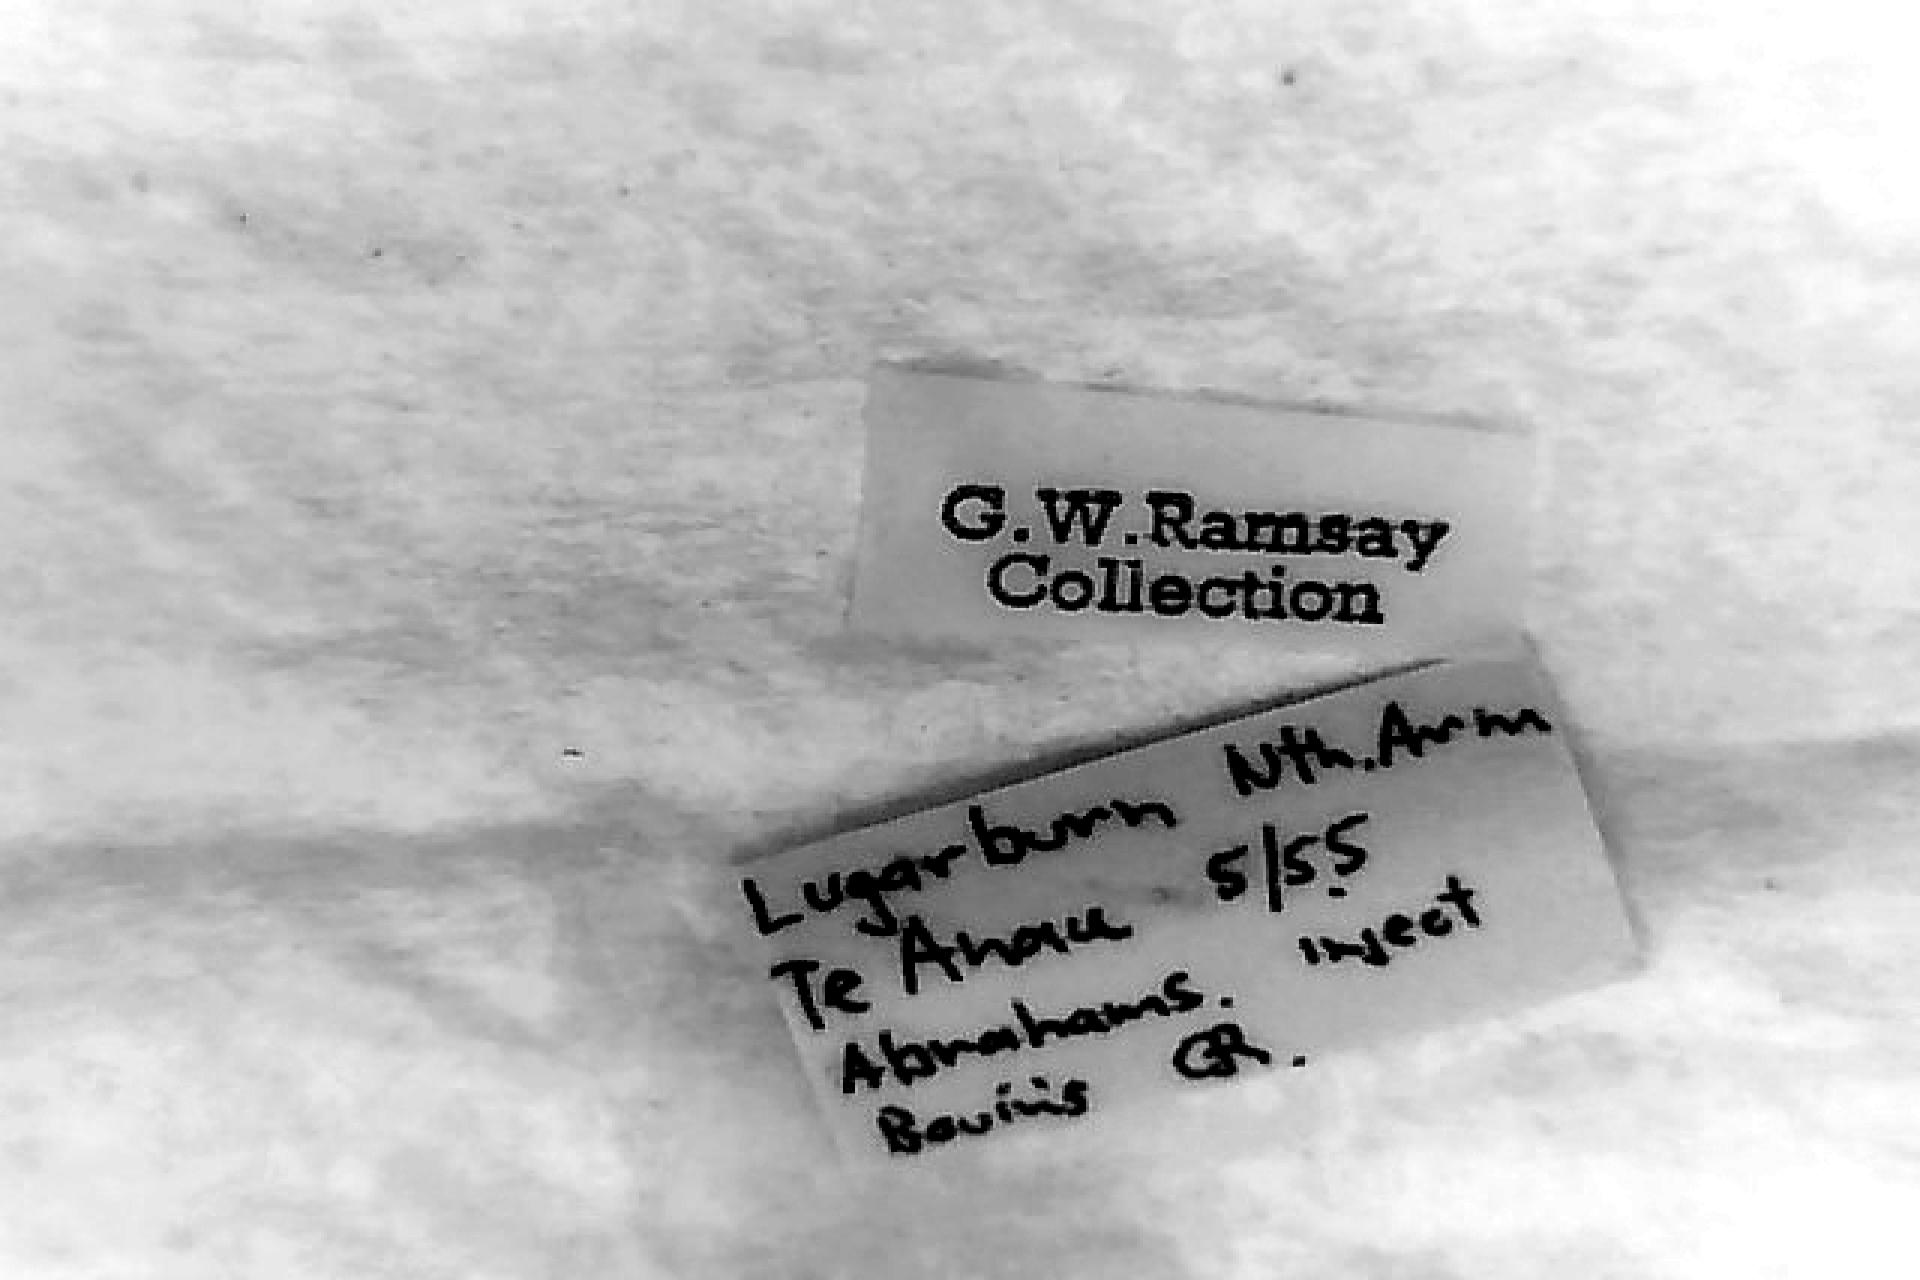 G.W.Ramsay
Collection
Lugar burn Nth.Arm
Te Anau 5/55
Abrahams. inject
Bouins GR.